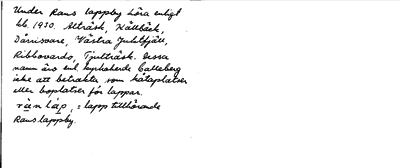 Under Rans lappby höra enligt
hb. 1930. Alträsk, Källbäck,
Västra Juktfjäll,
Ribbovardo, Tjulträsk. Dessa
namn äro enl. kyrkoherde Calleberg
icke att betrakta som kåtaplatser
eller boplatser för lappar.
= lapp tillhörande
Rans lappby.